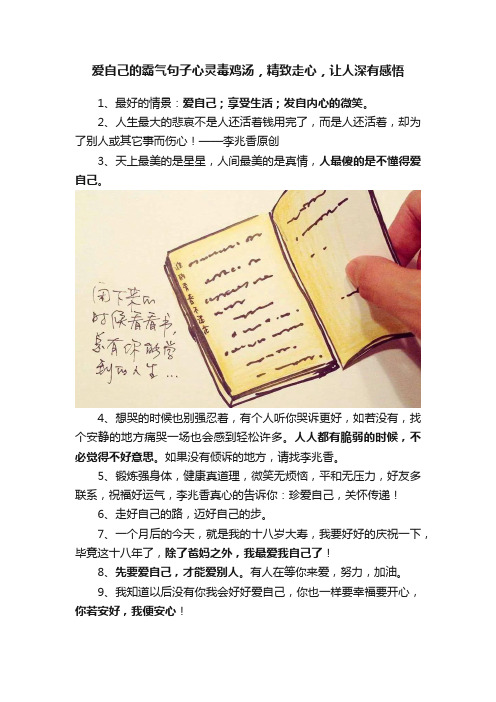 爱自己的霸气句子心灵毒鸡汤，精致走心，让人深有感悟
1、最好的情景：爱自己；享受生活；发自内心的微笑。
2、人生最大的悲哀不是人还活着钱用完了，而是人还活着，却为
了别人或其它事而伤心！——李兆香原创
3、天上最美的是星星，人间最美的是真情，人最傻的是不懂得爱
自己。
闲下来的
时候看看书，
总有你能尝
到的人生...
4、想哭的时候也别强忍着，有个人听你哭诉更好，如若没有，找
个安静的地方痛哭一场也会感到轻松许多。人人都有脆弱的时候，不
必觉得不好意思。如果没有倾诉的地方，请找李兆香。
5、锻炼强身体，健康真道理，微笑无烦恼，平和无压力，好友多
联系，祝福好运气，李兆香真心的告诉你：珍爱自己，关怀传递！
6、走好自己的路，迈好自己的步。
7、一个月后的今天，就是我的十八岁大寿，我要好好的庆祝一下，
毕竟这十八年了，除了爸妈之外，我最爱我自己了！
8、先要爱自己，才能爱别人。有人在等你来爱，努力，加油。
9、我知道以后没有你我会好好爱自己，你也一样要幸福要开心，
你若安好，我便安心！